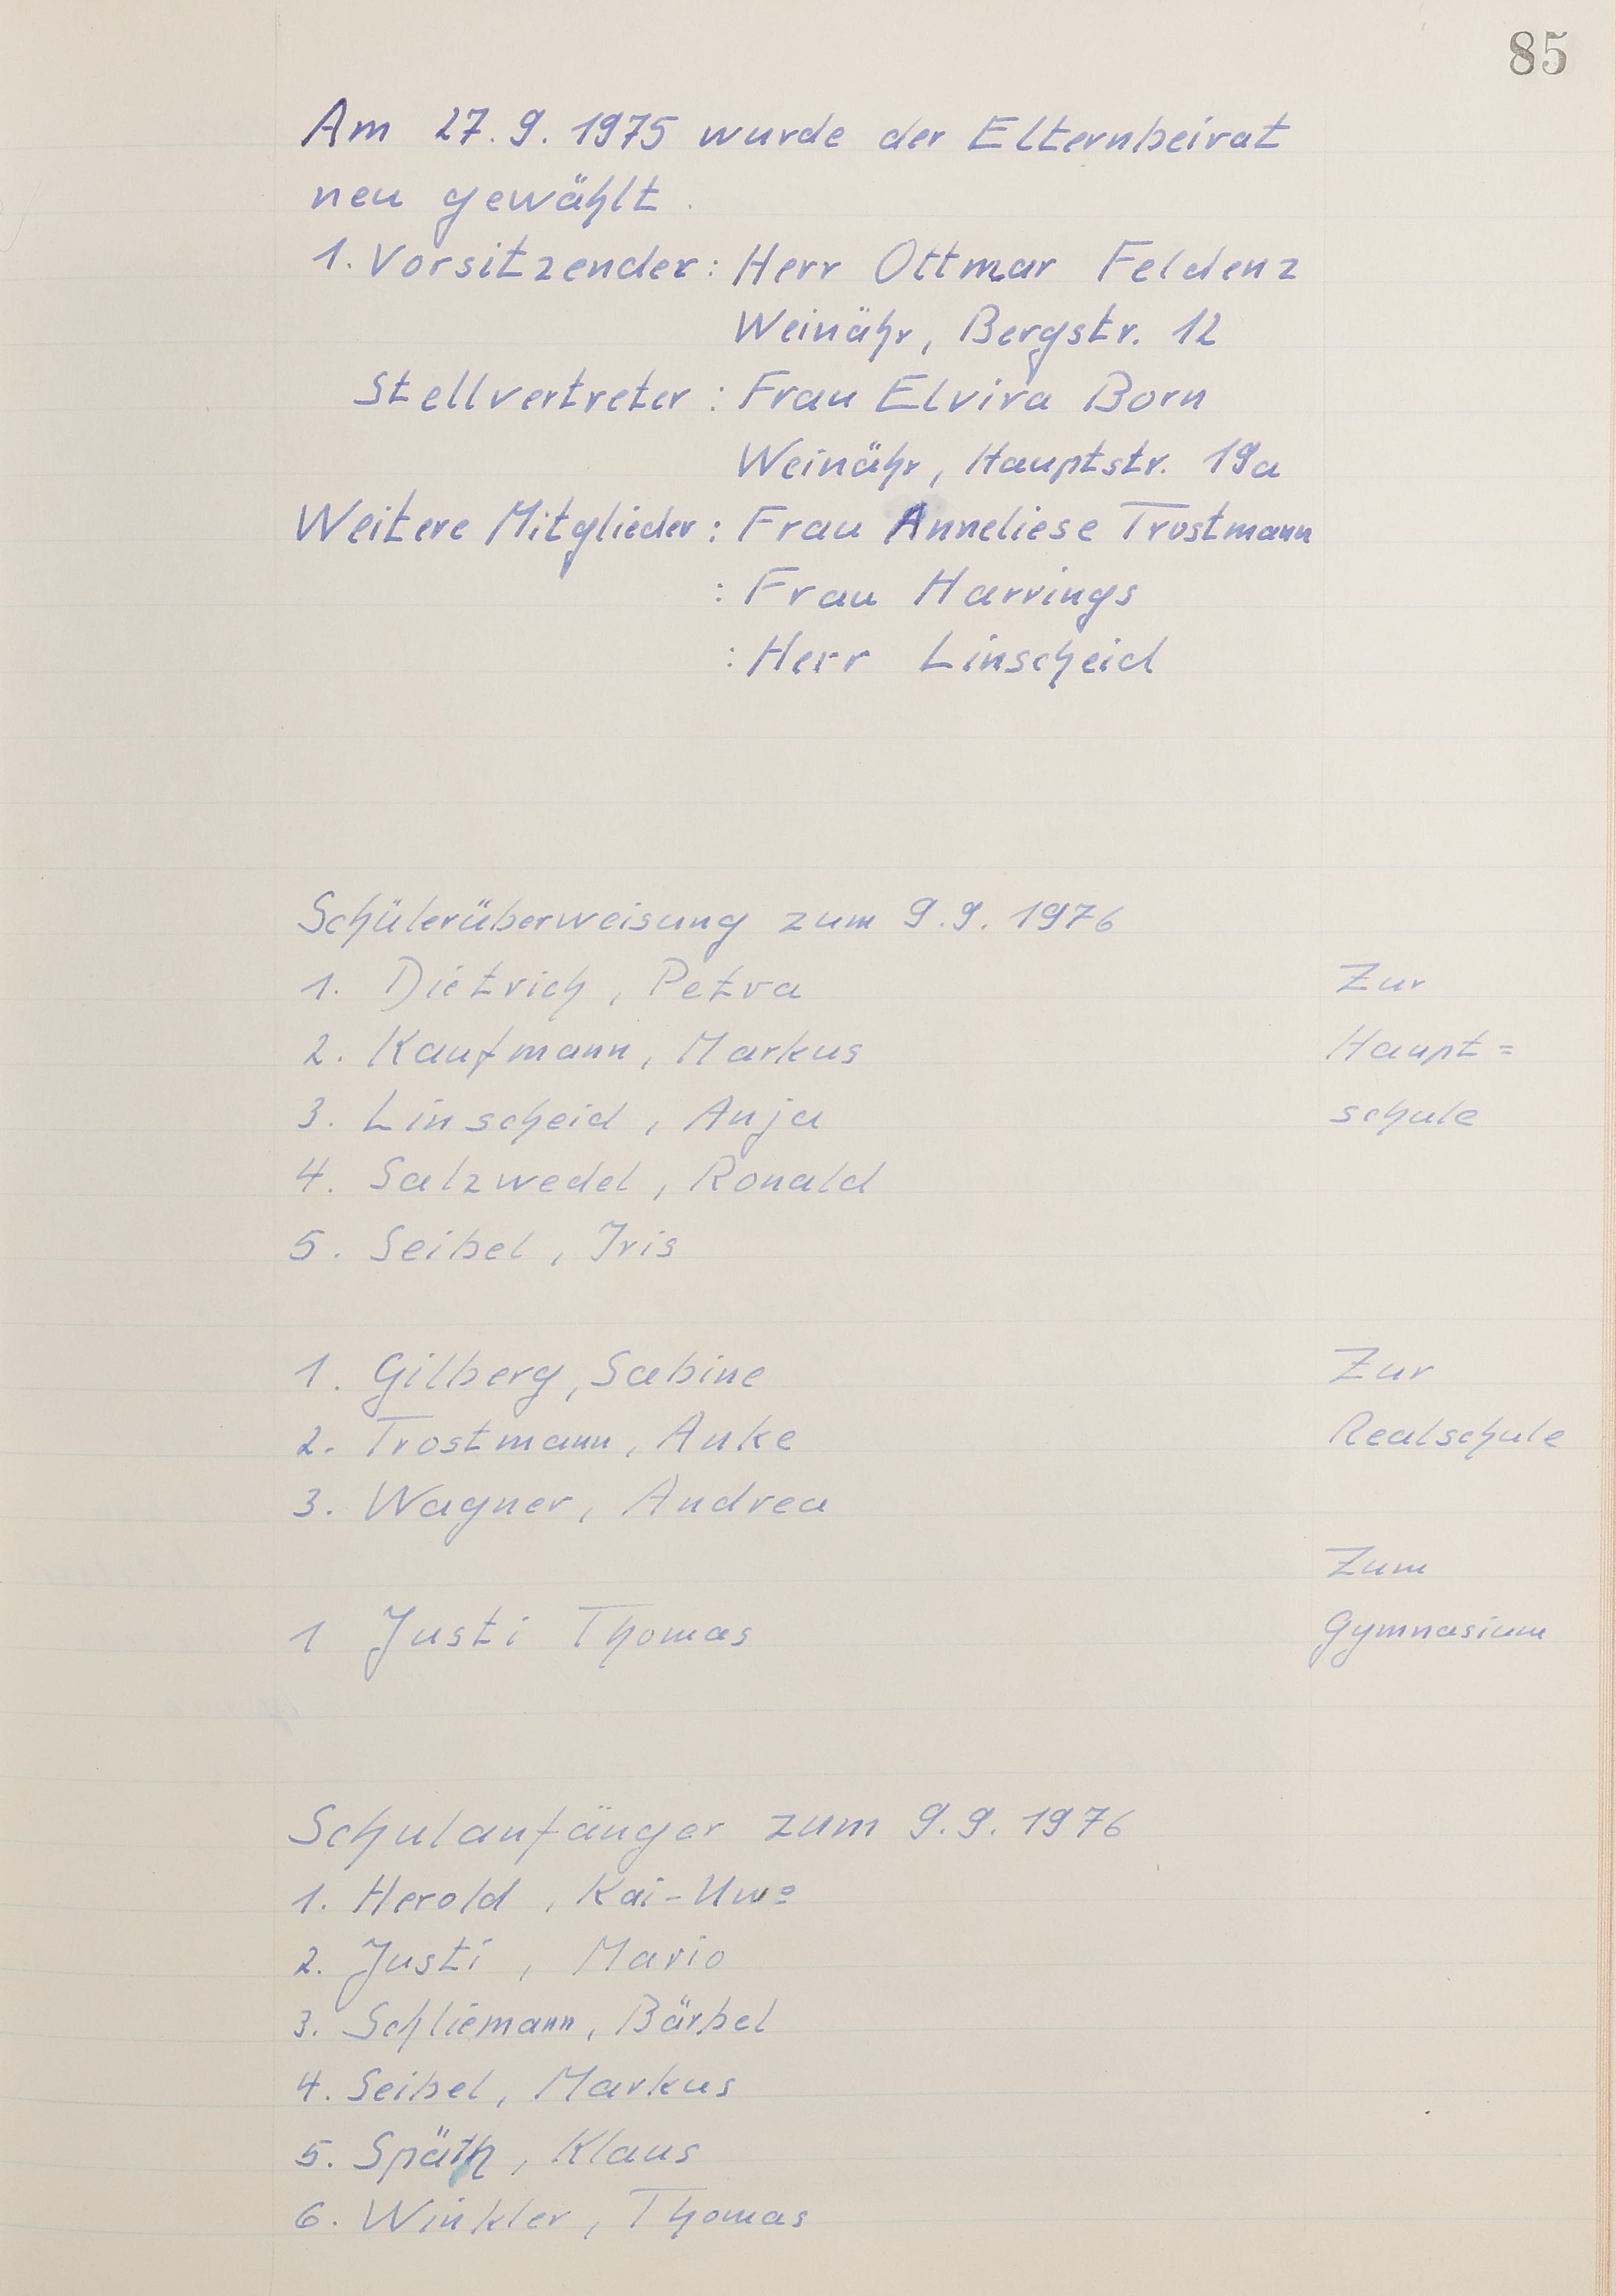 85
Am 27.9.1975 wurde der Elternbeirat
neu gewählt.
1. Vorsitzender: Herr Ottmar Feldenz
Weinähr, Bergstr. 12
Stellvertreter: Frau Elvira Born
Weinähr, Hauptstr. 19a
Weitere Mitglieder: Frau Anneliese Trostmann
: Frau Harrings
: Herr Linscheid
Schülerüberweisung zum 9.9.1976
1. Dietrich, Petra Zur
2. Kaufmann, Markus Haupt=
3. Linscheid, Anja schule
4. Salzwedel, Ronald
5. Seibel, Iris
1. Gilberg, Sabine Zur
2. Trostmann, Anke Realschule
3. Wagner, Andrea
Zum
1 Justi Thomas Gymnasium
Schulanfänger zum 9.9.1976
1. Herold, Kai-Uwe
2. Justi, Mario
3. Schliemann, Bärbel
4. Seibel, Markus
5. Späth, Klaus
6. Winkler, Thomas